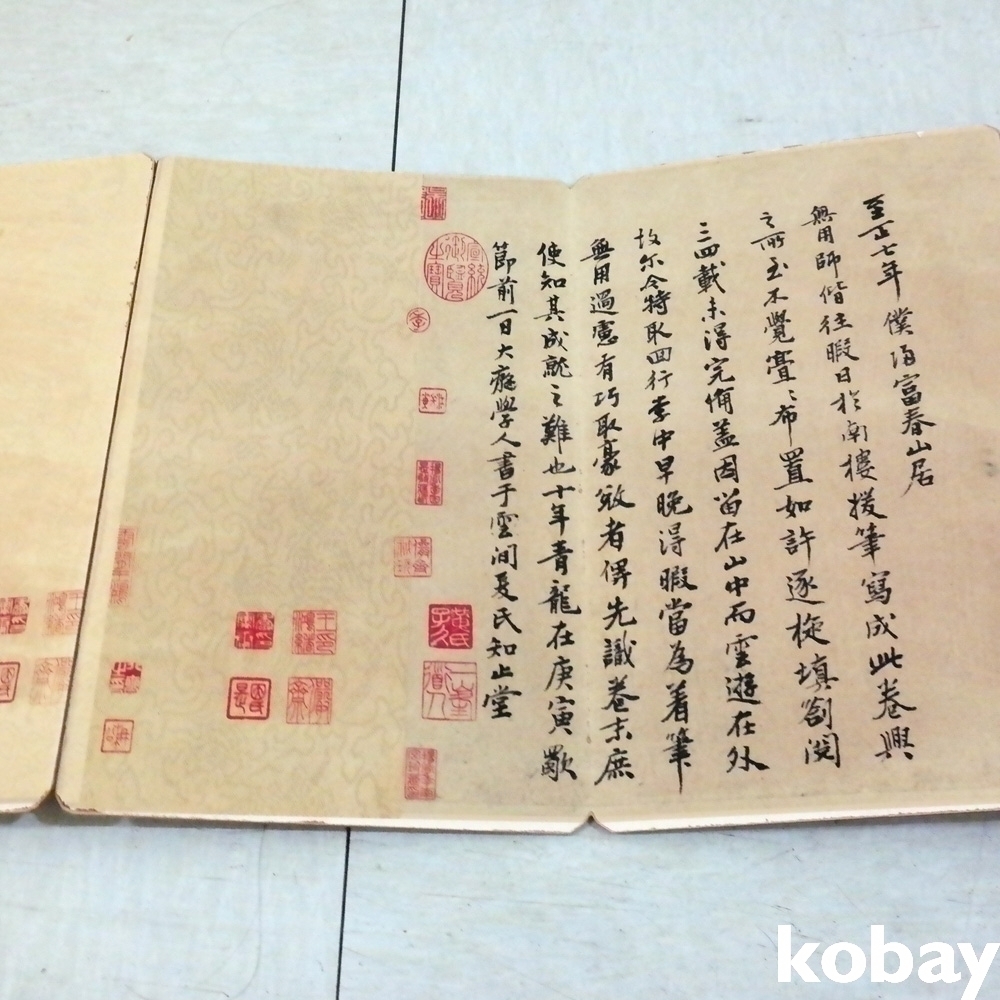 至正七年僕歸富春山居
無用師偕往暇日於南樓援筆寫成此卷興
之所至不覺亹亹布置如許逐旋填劄閱
三四載未得完備蓋因留在山中而雲遊在外
故爾今特取回行李中早晚得暇當為着筆
無用過慮有巧取豪敓者俾先識卷末庶
使知其成就之難也十年青龍在庚寅歜
節前一日大癡學人書于雲間夏氏知止堂
宣統御覽之寶
kobay